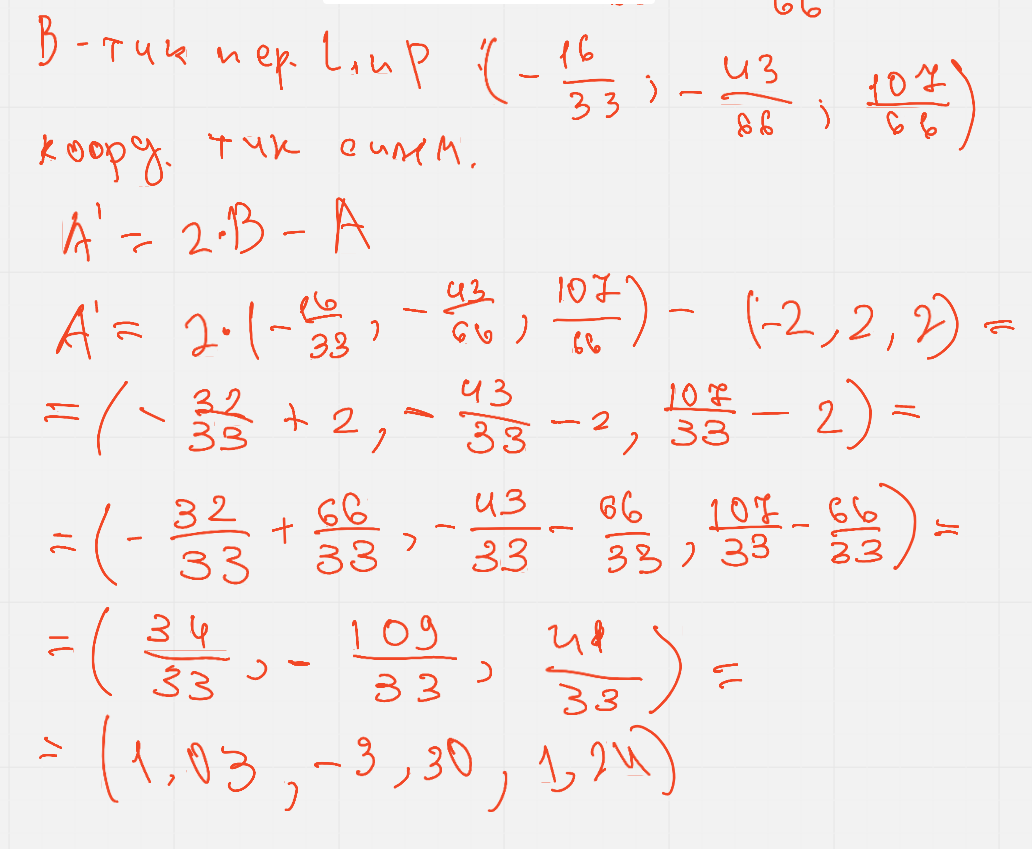 66
В - тчк пер. L и P : (- 16/33 ; - 43/66 ; 107/66)
коорд. тчк симм.
A' = 2·B - A
A' = 2·(- 16/33, - 43/66, 107/66) - (-2, 2, 2) =
= (- 32/33 + 2, - 43/33 - 2, 107/33 - 2) =
= (- 32/33 + 66/33, - 43/33 - 66/33, 107/33 - 66/33) =
= (34/33, - 109/33, 41/33) =
= (1,03, -3,30, 1,24)